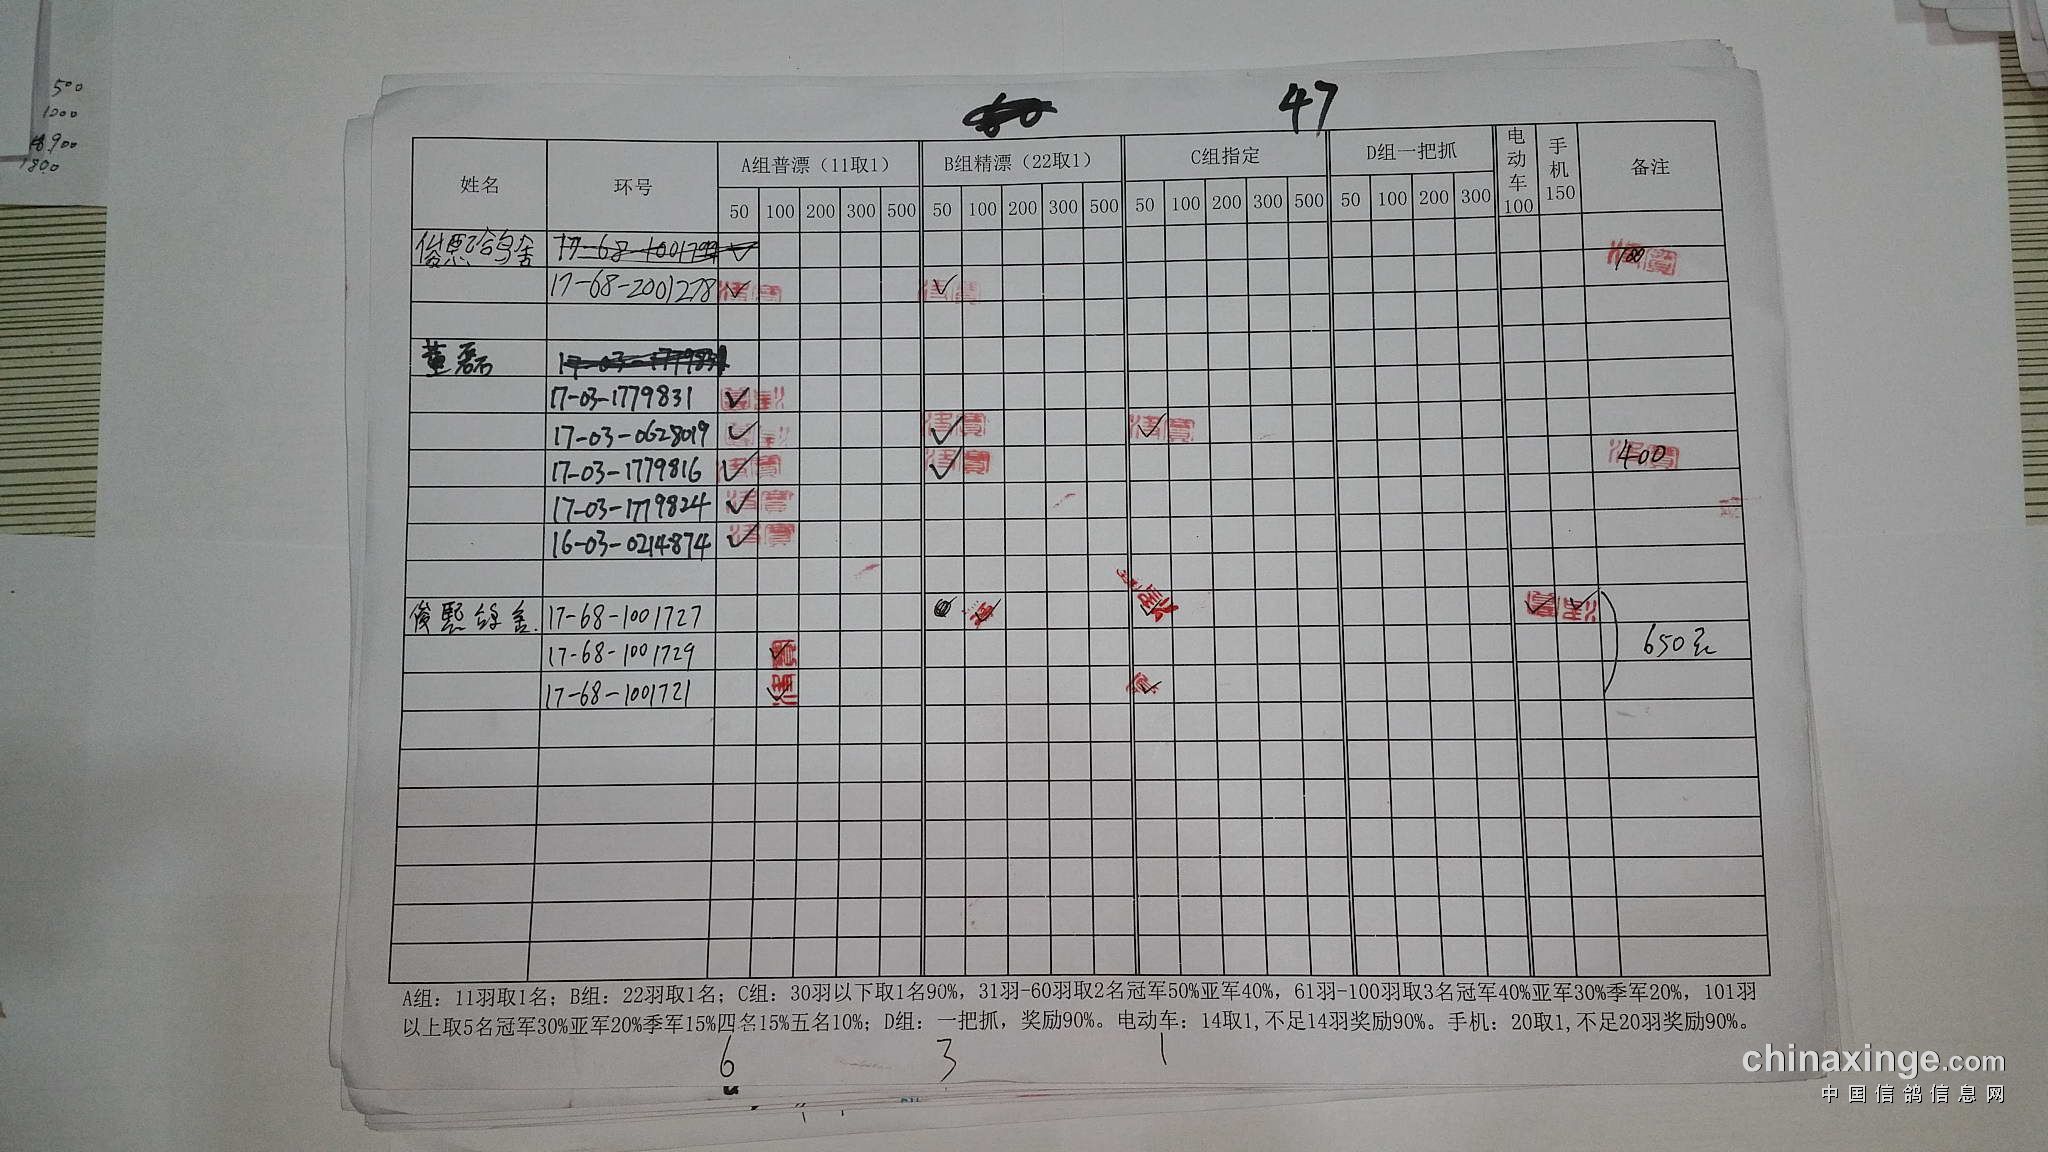 500
1000
1800
47
姓名 环号 A组普漂（11取1） B组精漂（22取1） C组指定 D组一把抓 电动车100 手机150 备注
50 100 200 300 500 50 100 200 300 500 50 100 200 300 500 50 100 200 300
俊熙鸽舍 17-68-1001799
100
17-68-2001278
董磊
17-03-1779831
17-03-0628019
400
17-03-1779816
17-03-1779824
16-03-0214874
俊熙鸽舍 17-68-1001727
17-68-1001729 650元
17-68-1001721
A组：11羽取1名；B组：22羽取1名；C组：30羽以下取1名90%，31羽-60羽取2名冠军50%亚军40%，61羽-100羽取3名冠军40%亚军30%季军20%，101羽
以上取5名冠军30%亚军20%季军15%四名15%五名10%；D组：一把抓，奖励90%。电动车：14取1,不足14羽奖励90%。手机：20取1,不足20羽奖励90%。
6 3 1
chinaxinge.com
中国信鸽信息网